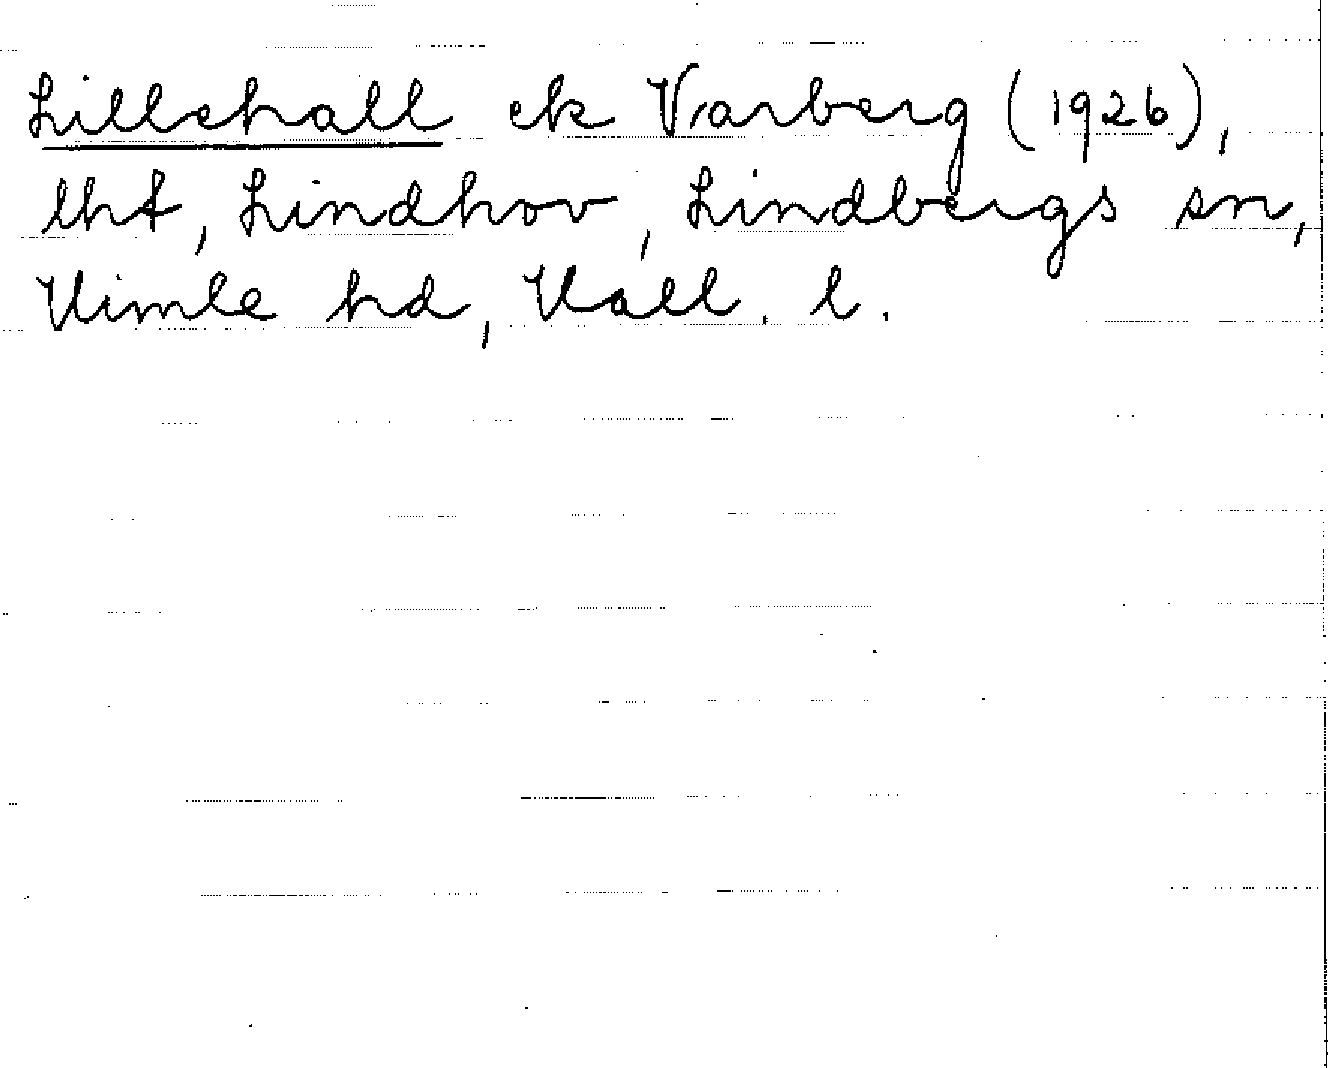 Lillehall ek Varberg (1926),
lht, Lindhov, Lindbergs sn,
Himle hd, Hall. l.